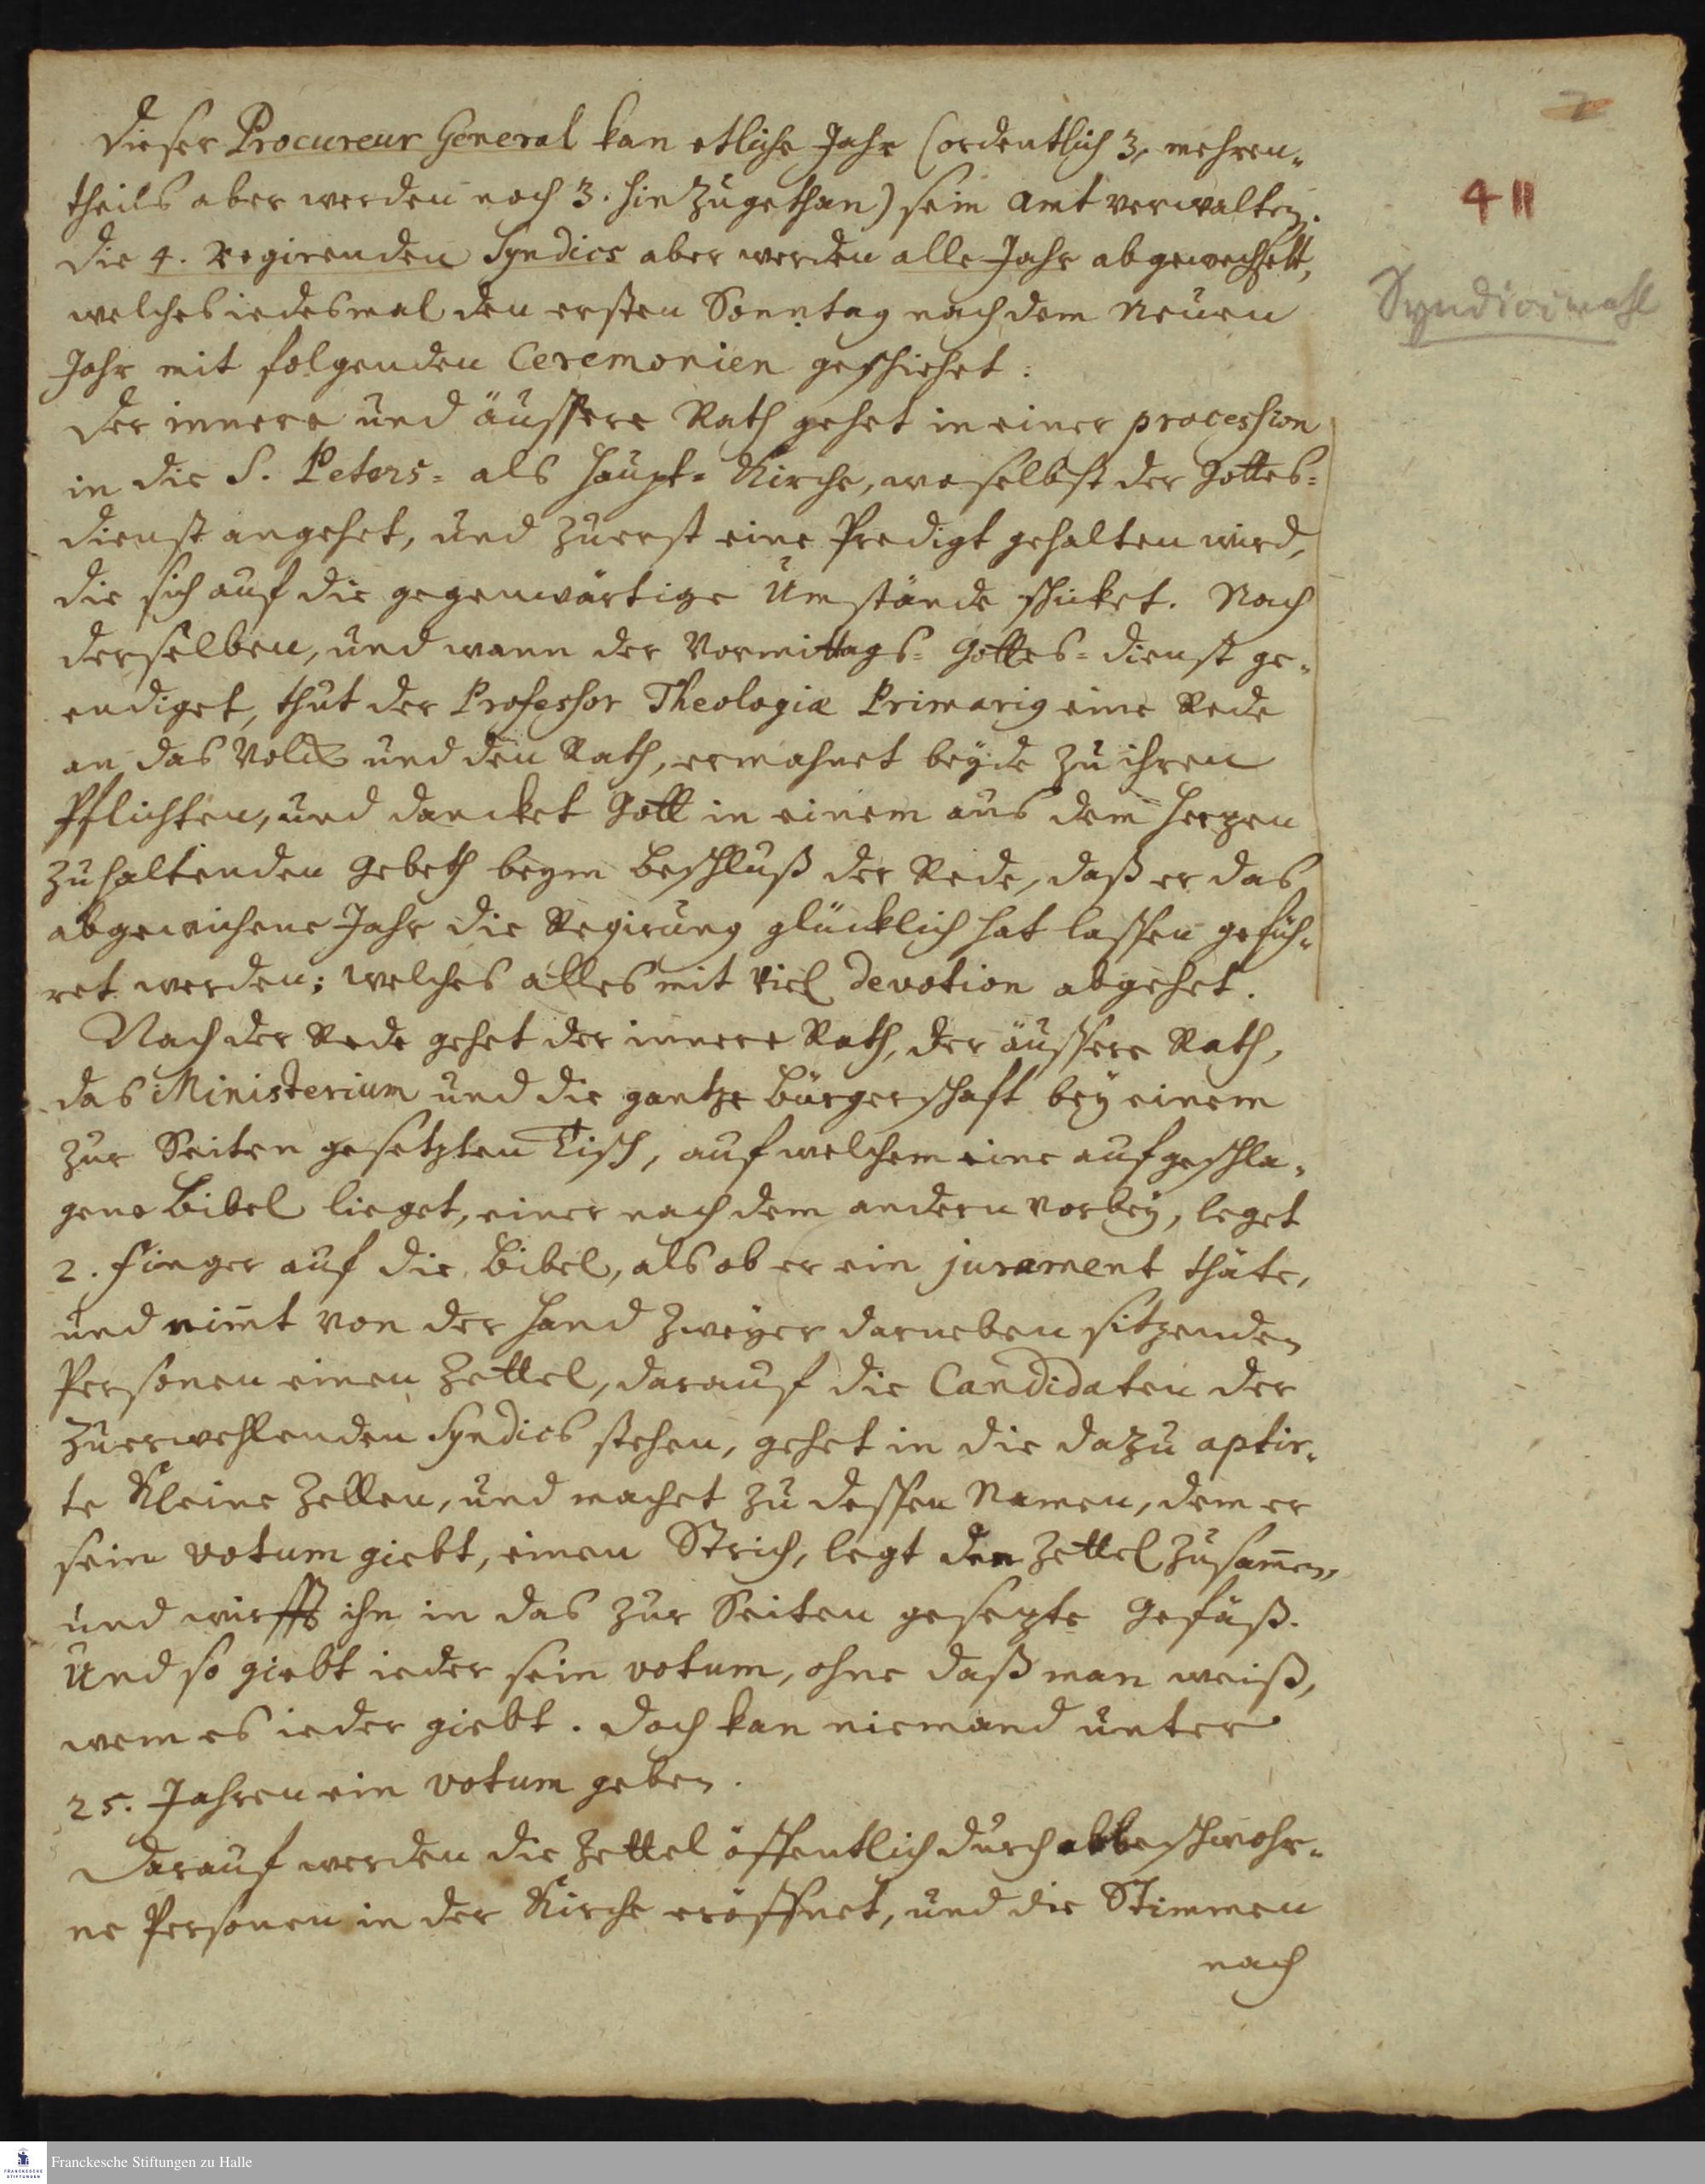 2
411
Syndicimahl
Dieser Procureur General kan etliche Jahr (ordentlich 3, mehren-
theils aber werden noch 3. hinzugethan) sein Amt verwalten.
Die 4. Regirenden Syndics aber werden alle Jahr abgewechselt,
welches iedesmal den ersten Sonntag nach dem Neuen
Jahr mit folgenden Ceremonien geschiehet:
Der innere und äussere Rath gehet in einer procession
in die S. Peters- als Haupt-Kirche, woselbst der Gottes-
dienst angehet, und zuerst eine Predigt gehalten wird,
die sich auf die gegenwärtige Umstände schicket. Nach
derselben, und wann der Vormittags-Gottes-dienst ge-
endiget, thut der Professor Theologiæ Primarig eine Rede
an das Volck und den Rath, ermahnet beyde zu ihren
Pflichten, und dancket Gott in einem aus dem Herzen
zuhaltenden Gebeth beym Beschluß der Rede, daß er das
abgewichene Jahr die Regirung glücklich hat lassen gefüh-
ret werden; welches alles mit viel devotion abgehet.
Nach der Rede gehet der innere Rath, der äussere Rath,
das Ministerium und die gantze Bürgerschaft bey einem
zur Seiten gesetzten Tisch, auf welchem eine aufgeschla-
gene Bibel lieget, einer nach dem andern vorbey, leget
2. Finger auf die Bibel, als ob er ein jurament thäte,
und nim̄t von der Hand zweyer darneben sitzenden
Personen einen Zettel, darauf die Candidaten der
zuerwehlenden Syndics stehen, gehet in die dazu aptir-
te kleine Zellen, und machet zu dessen Namen, dem er
sein votum giebt, einen Strich, legt den Zettel zusam̄en,
und wirfft ihn in das zur Seiten gesezte Gefäß.
Und so giebt ieder sein votum, ohne daß man weiß,
wem es ieder giebt. Doch kan niemand unter
25. Jahren ein votum geben.
Darauf werden die Zettel öffentlich durch beschwohr-
ne Personen in der Kirche eröffnet, und die Stimmen
nach
Franckesche Stiftungen zu Halle
FRANCKESCHE
STIFTUNGEN